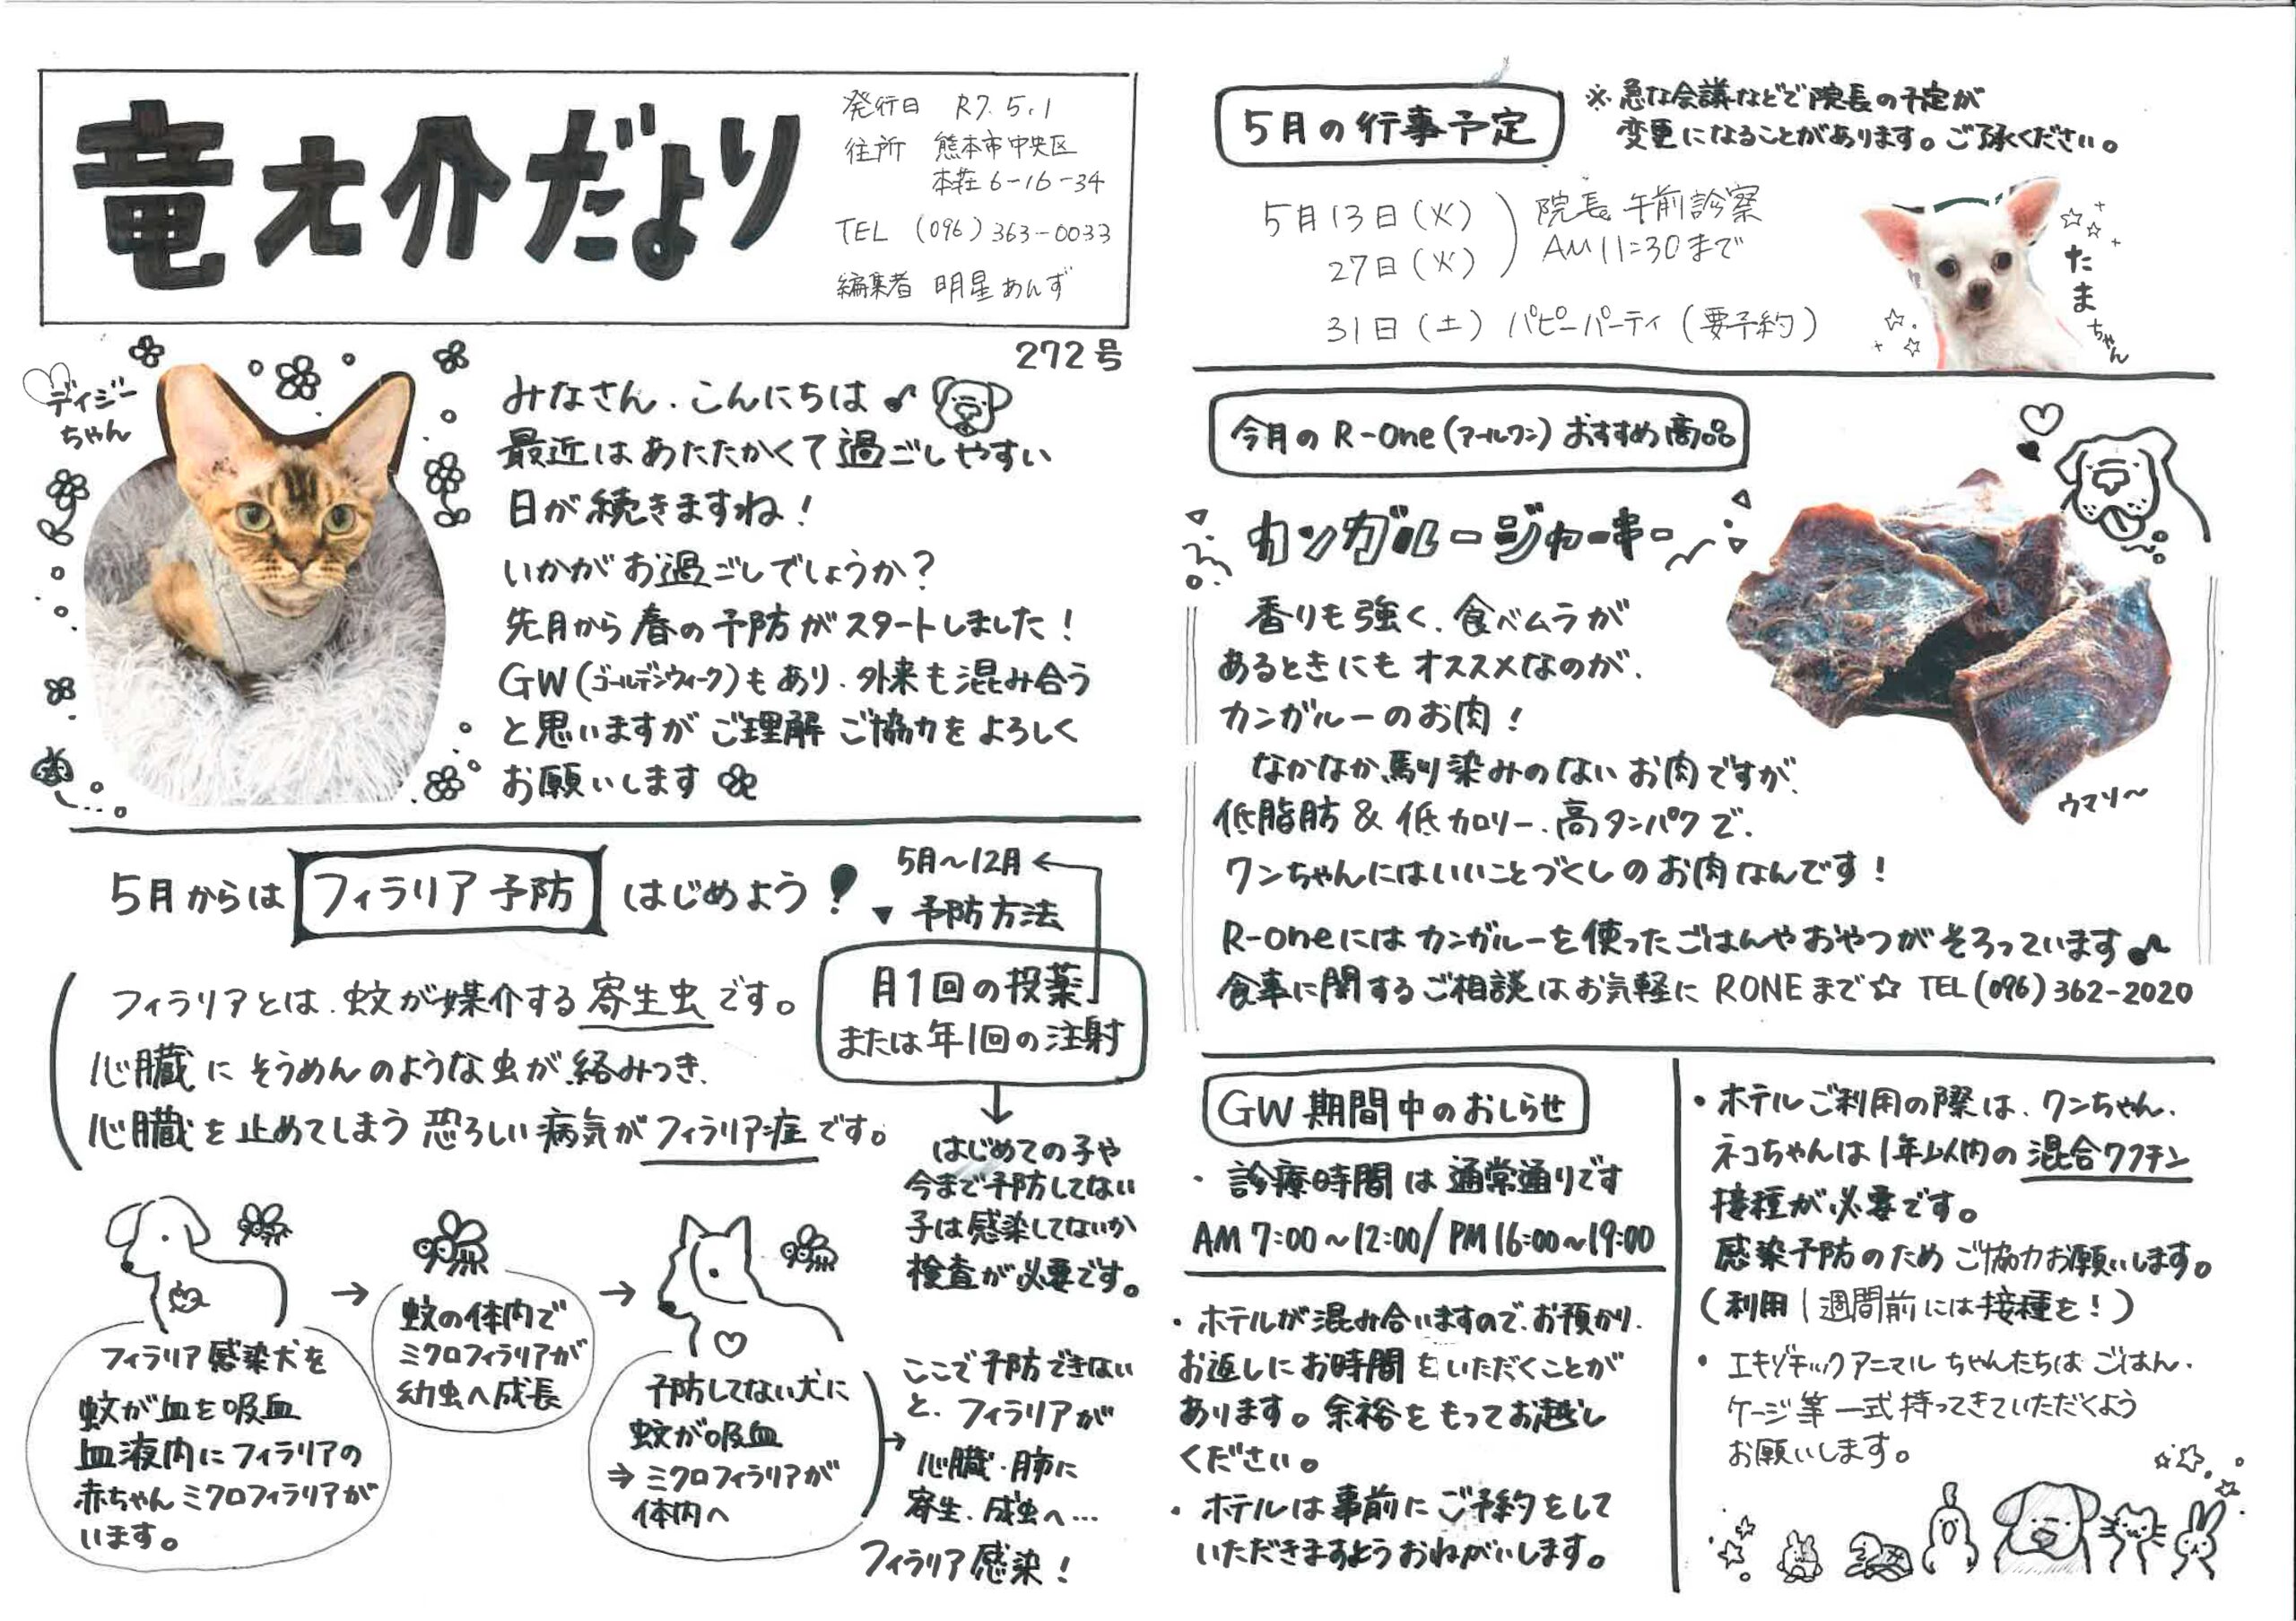 竜之介だより
発行日 R7.5.1
住所 熊本市中央区
本荘6-16-34
TEL (096)363-0033
編集者 明星あんず
272号
ディジー
ちゃん
みなさん、こんにちは♪
最近はあたたかくて過ごしやすい
日が続きますね!
いかがお過ごしでしょうか?
先月から春の予防がスタートしました!
GW(ゴールデンウィーク)もあり、外来も混み合う
と思いますがご理解ご協力をよろしく
お願いします
5月からは フィラリア予防 はじめよう!
フィラリアとは、蚊が媒介する寄生虫です。
心臓にそうめんのような虫が絡みつき、
心臓を止めてしまう恐ろしい病気がフィラリア症です。
5月〜12月←
▼予防方法
月1回の投薬
または年1回の注射
↓
はじめての子や
今まで予防してない
子は感染してないか
検査が必要です。
フィラリア感染犬を
蚊が血を吸血
血液内にフィラリアの
赤ちゃんミクロフィラリアが
います。
→
蚊の体内で
ミクロフィラリアが
幼虫へ成長
→
予防してない犬に
蚊が吸血
⇒ミクロフィラリアが
体内へ
→
ここで予防できない
と、フィラリアが
心臓・肺に
寄生、成虫へ…
フィラリア感染!
5月の行事予定
※急な会議などで院長の予定が
変更になることがあります。ご了承ください。
5月13日(火)
27日(火)
院長午前診察
AM11:30まで
31日(土) パピーパーティ(要予約)
たまちゃん
今月のR-One(アールワン)おすすめ商品
カンガルージャーキー
香りも強く、食べムラが
あるときにもオススメなのが、
カンガルーのお肉!
なかなか馴染みのないお肉ですが、
低脂肪&低カロリー、高タンパクで、
ワンちゃんにはいいことづくしのお肉なんです!
ウマソ〜
R-oneにはカンガルーを使ったごはんやおやつがそろっています♪
食事に関するご相談はお気軽にRONEまで☆ TEL(096)362-2020
GW期間中のおしらせ
・診療時間は通常通りです
AM7:00〜12:00/PM16:00〜19:00
・ホテルが混み合いますので、お預かり、
お返しにお時間をいただくことが
あります。余裕をもってお越し
ください。
・ホテルは事前にご予約をして
いただきますようおねがいします。
・ホテルご利用の際は、ワンちゃん、
ネコちゃんは1年以内の混合ワクチン
接種が必要です。
感染予防のためご協力お願いします。
(利用1週間前には接種を!)
・エキゾチックアニマルちゃんたちはごはん、
ケージ等一式持ってきていただくよう
お願いします。